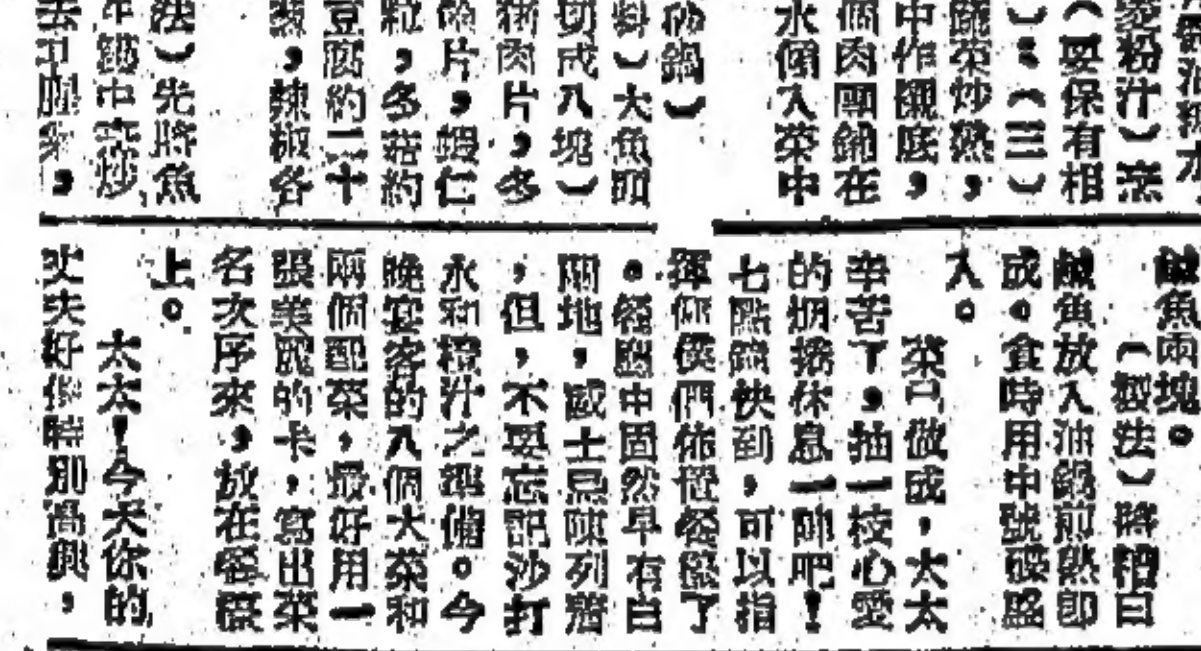 菱粉汁）烹
（要保有相
）：（三）
蔬菜炒熟，
中作襯底，
個肉圓鍋在
水倒入菜中
砂鍋）
料）大魚
切成八塊）
肉片，多
片，蝦仁
粒，多菇約
豆腐約二十
，辣椒各
法）先將魚
中炒
去，
鹹魚兩塊。
（製法）將糟白
鹹魚放入油鍋煎熟即
成。食時用中號碟盛
入。
菜已做成，太太
辛苦了，抽一枝心愛
的烟捲休息一陣吧！
七點鐘快到，可以指
揮傭僕們佈置餐檯了
。餐廳中固然早有白
蘭地，威士忌陳列着
，但，不要忘記沙打
水和橙汁之準備。今
晚宴客的八個大菜和
兩個配菜，最好用一
張美麗的卡，寫出菜
名次序來，放在餐檯
上。
太太！今天你的
丈夫好像特別高興，